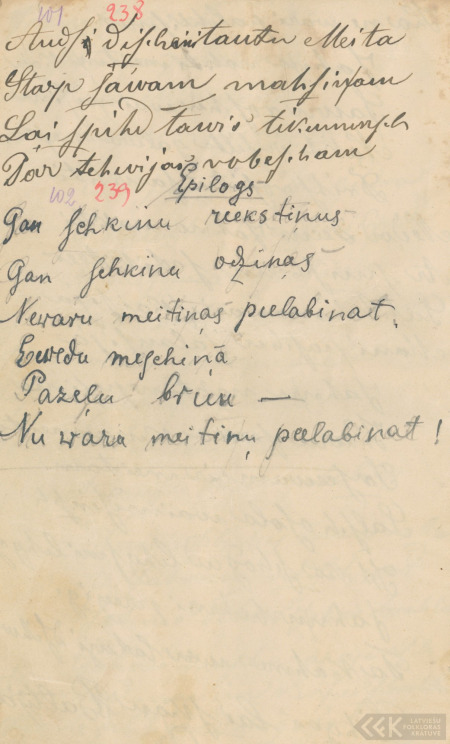 101 238
Audſi diſchan tautu Meita
Starp ſawam mahſiņam
Lai ſpihd tawis tikumunsch
Par tehwijas robeſcham
102 239
Epilogs
Gan ſehkinu reekstiņus
Gan ſehkinu odziņas
Newaru meitiņas peelabinat.
Eewedu meſchiņā
Pazeļu brieu —
Nu wāru meitiņu peelabinat!
LATVIEŠU
FOLKLORAS
KRĀTUVE